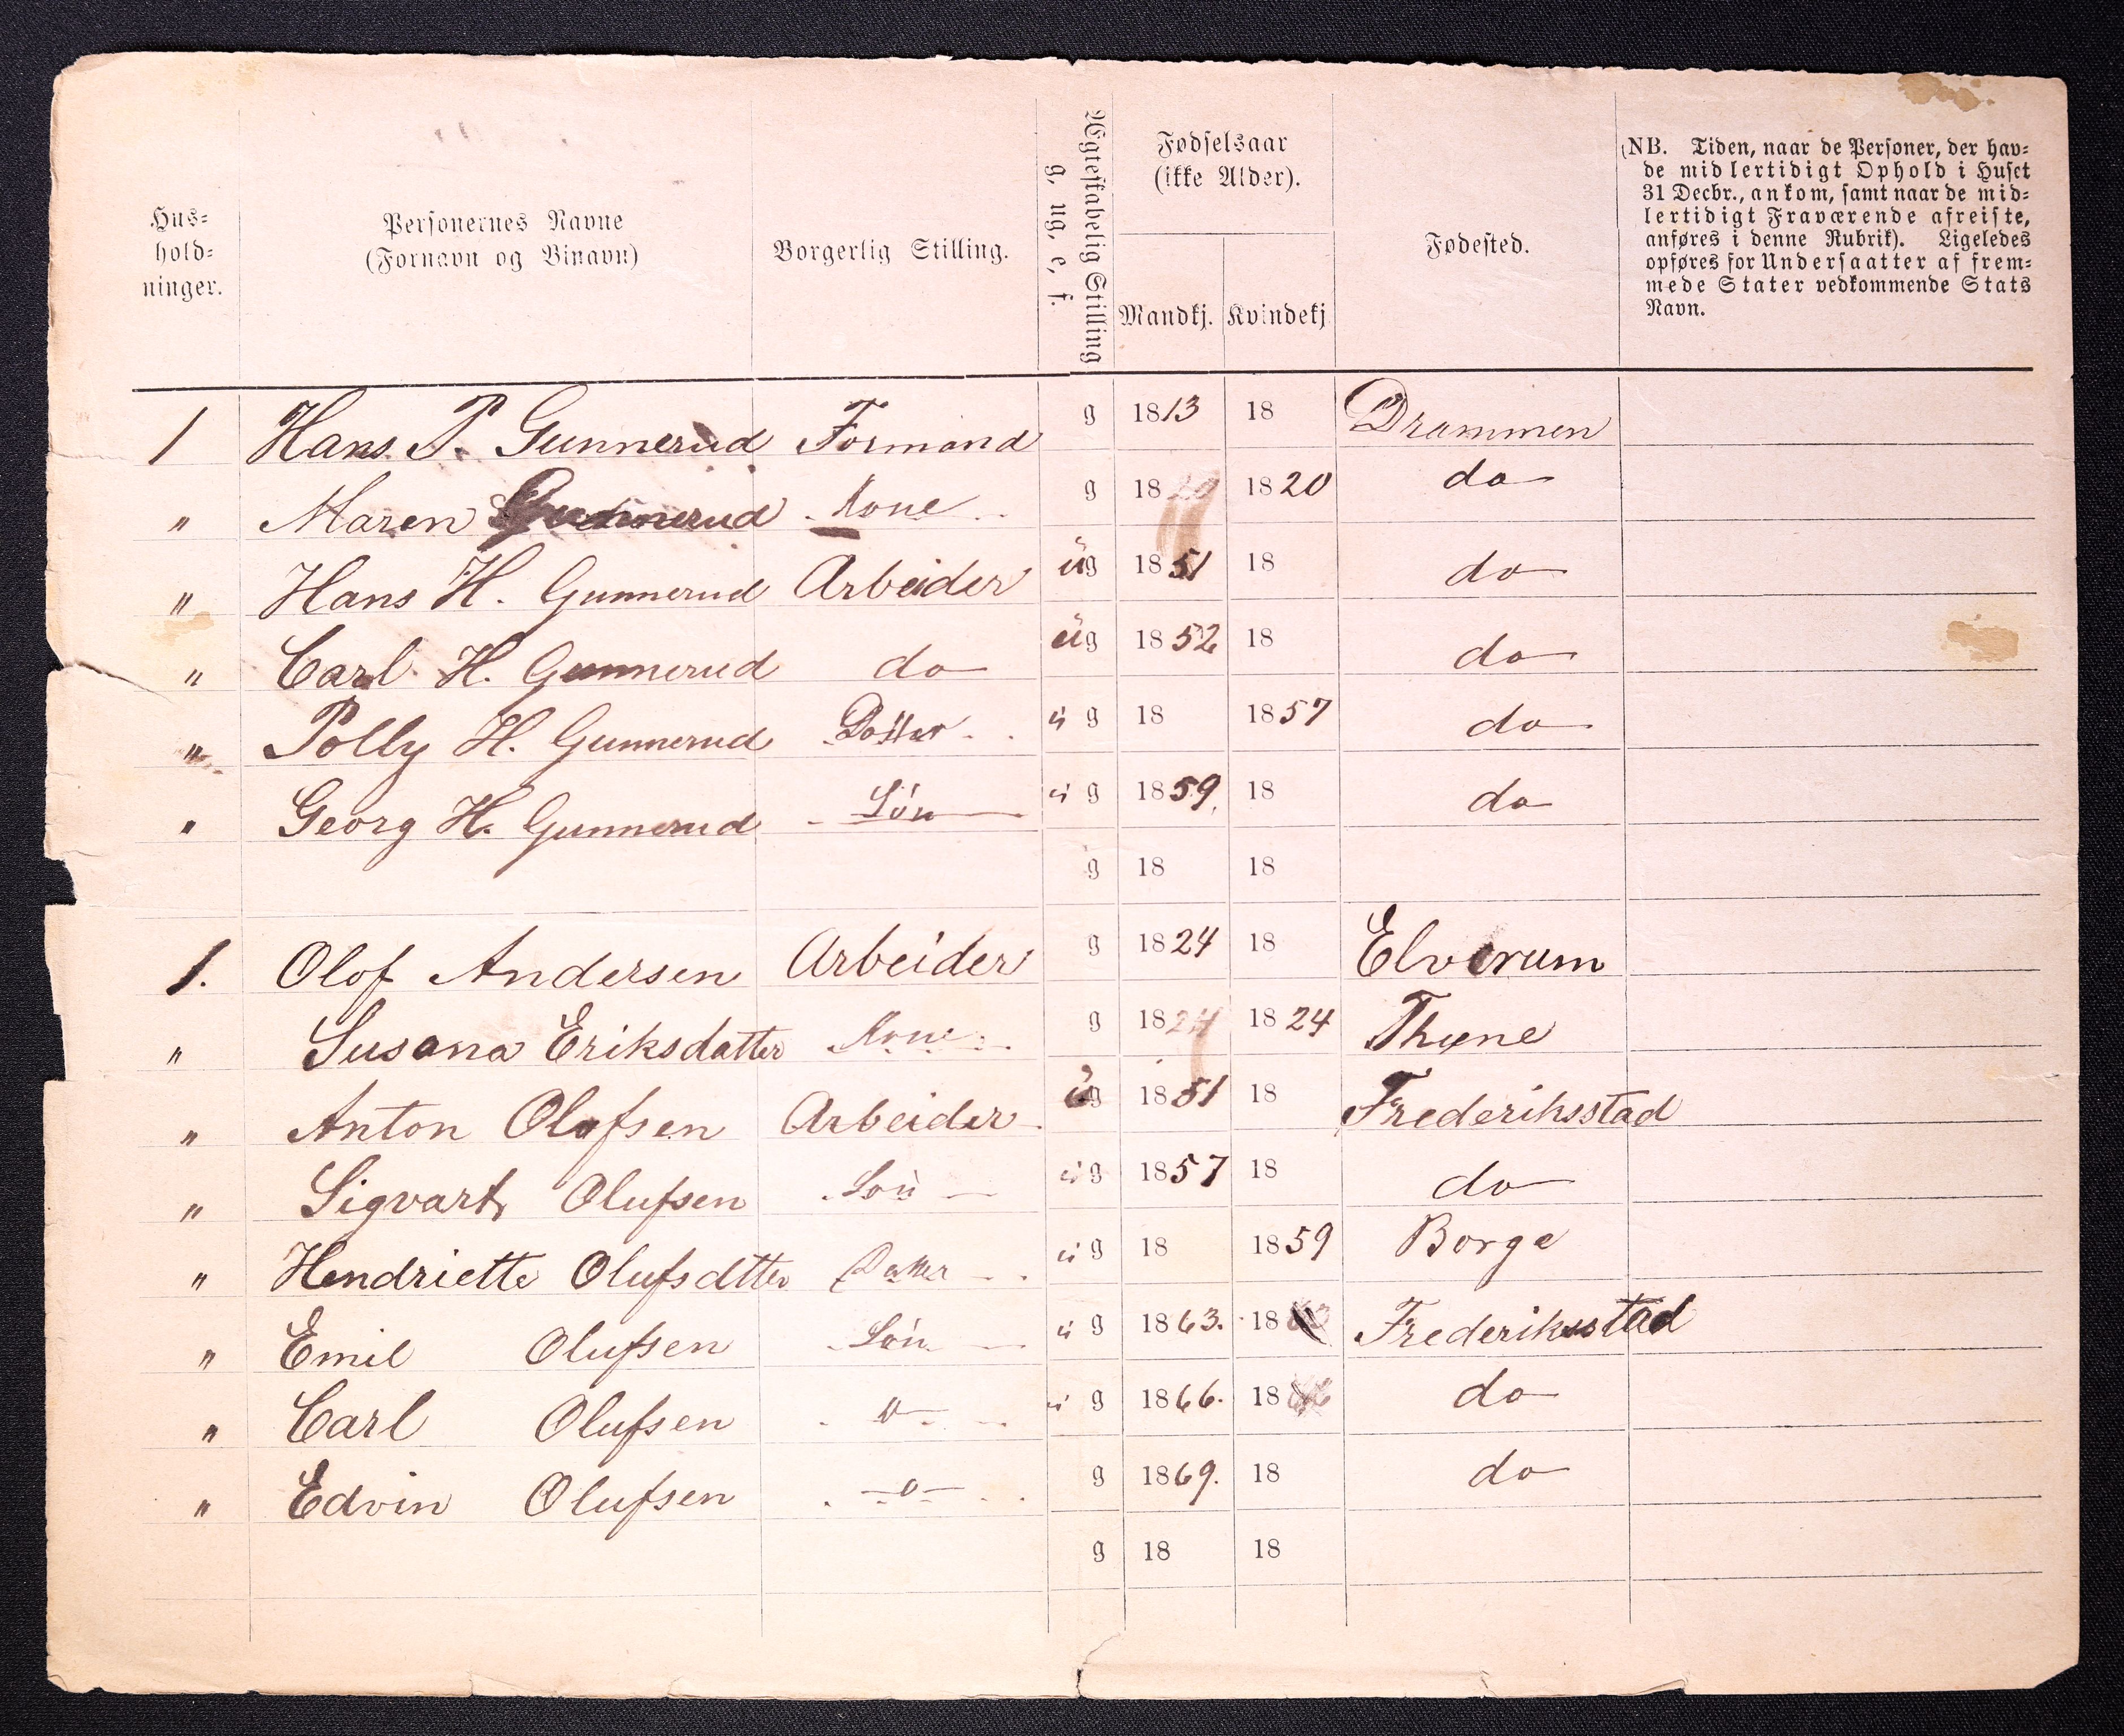 Hus-
hold-
ninger.
Personernes Navne
(Fornavn og Binavn)
Borgerlig Stilling.
Ægteskabelig Stilling
g, ug, e, f.
Fødselsaar
(ikke Alder).
Mandkj. Kvindekj
Fødested.
(NB. Tiden, naar de Personer, der hav-
de midlertidigt Ophold i Huset
31 Decbr., ankom, samt naar de mid-
lertidigt Fraværende afreiste,
anføres i denne Rubrik). Ligeledes
opføres for Undersaatter af frem-
mede Stater vedkommende Stats
Navn.
1 Hans P. Gunnerud Formand g 1813 18 Drammen
" Maren Gunnerud Kone g 18 1820 do
" Hans H. Gunnerud Arbeider ug 1851 18 do
" Carl H. Gunnerud do ug 1852 18 do
" Polly H. Gunnerud Datter ug 18 1857 do
" Georg H. Gunnerud Søn ug 1859. 18 do
g 18 18
1. Olof Andersen Arbeider g 1824 18 Elverum
" Susana Eriksdatter Kone g 1824 1824 Thune
" Anton Olofsen Arbeider ug 1851 18 Frederiksstad
" Sigvart Olufsen Søn ug 1857 18 do
" Hendriette Olufsdtter Datter ug 18 1859 Borge
" Emil Olufsen Søn ug 1863. 18 Frederiksstad
" Carl Olufsen ug 1866. 18 do
" Edvin Olufsen g 1869. 18 do
g 18 18